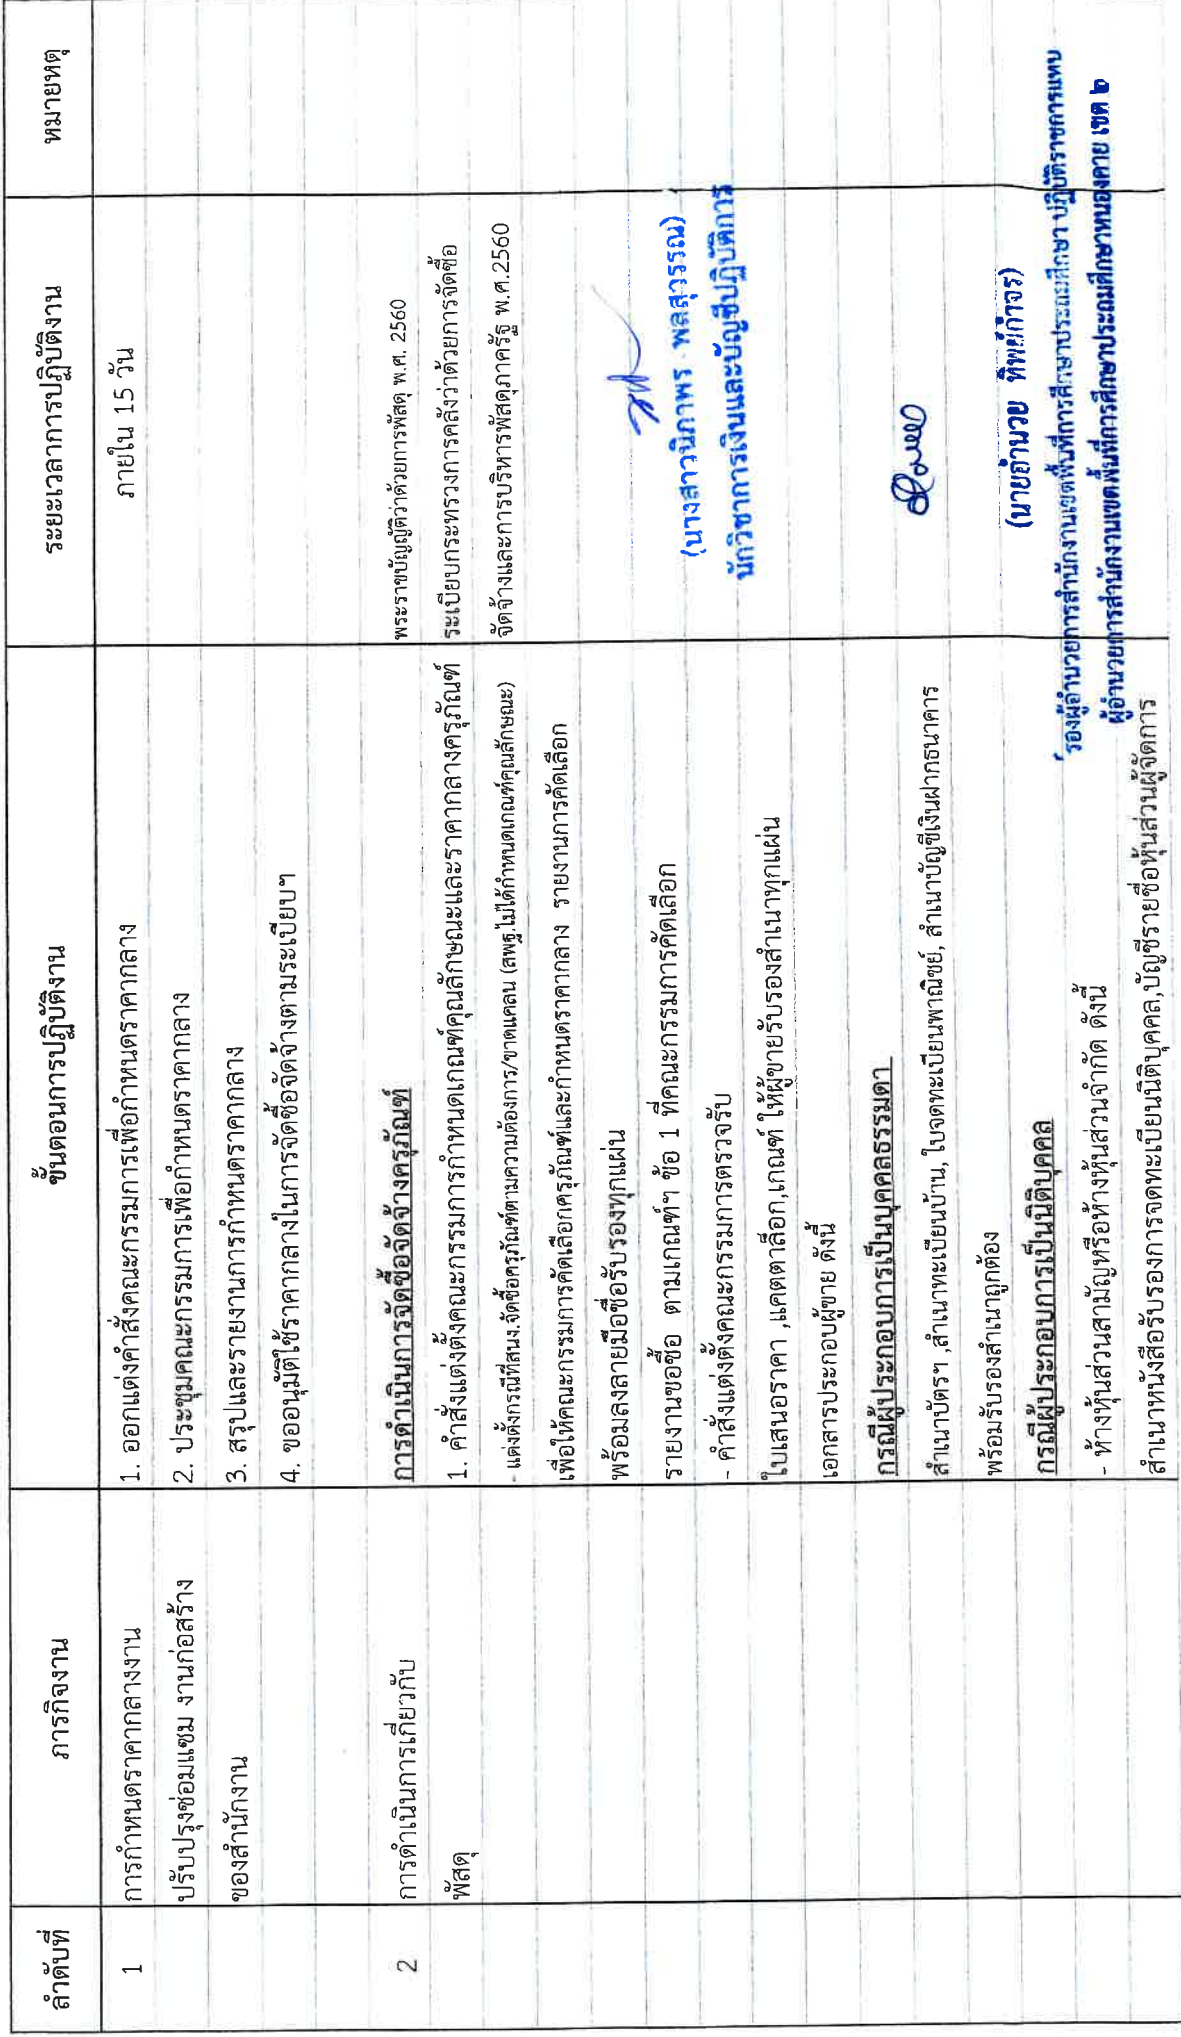 ลำดับที่ ภารกิจงาน ขั้นตอนการปฏิบัติงาน ระยะเวลาการปฏิบัติงาน หมายเหตุ
1 การกำหนดราคากลางงาน 1. ออกแต่งคำสั่งคณะกรรมการเพื่อกำหนดราคากลาง ภายใน 15 วัน
ปรับปรุงซ่อมแซม งานก่อสร้าง 2. ประชุมคณะกรรมการเพื่อกำหนดราคากลาง
ของสำนักงาน 3. สรุปและรายงานการกำหนดราคากลาง
4. ขออนุมัติใช้ราคากลางในการจัดซื้อจัดจ้างตามระเบียบฯ
2 การดำเนินการเกี่ยวกับ การดำเนินการจัดซื้อจัดจ้างครุภัณฑ์ พระราชบัญญัติว่าด้วยการพัสดุ พ.ศ. 2560
พัสดุ 1. คำสั่งแต่งตั้งคณะกรรมการกำหนดเกณฑ์คุณลักษณะและราคากลางครุภัณฑ์ ระเบียบกระทรวงการคลังว่าด้วยการจัดซื้อ
- แต่งตั้งกรณีที่สนง.จัดซื้อครุภัณฑ์ตามความต้องการ/ขาดแคลน (สพฐ.ไม่ได้กำหนดเกณฑ์คุณลักษณะ) จัดจ้างและการบริหารพัสดุภาครัฐ พ.ศ.2560
เพื่อให้คณะกรรมการคัดเลือกครุภัณฑ์และกำหนดราคากลาง รายงานการคัดเลือก
พร้อมลงลายมือชื่อรับรองทุกแผ่น
รายงานขอซื้อ ตามเกณฑ์ฯ ข้อ 1 ที่คณะกรรมการคัดเลือก (นางสาวนิภาพร พลสุวรรณ)
- คำสั่งแต่งตั้งคณะกรรมการตรวจรับ นักวิชาการเงินและบัญชีปฏิบัติการ
ใบเสนอราคา ,แคตตาล็อก,เกณฑ์ ให้ผู้ขายรับรองสำเนาทุกแผ่น
เอกสารประกอบผู้ขาย ดังนี้
กรณีผู้ประกอบการเป็นบุคคลธรรมดา
สำเนาบัตรฯ ,สำเนาทะเบียนบ้าน, ใบจดทะเบียนพาณิชย์, สำเนาบัญชีเงินฝากธนาคาร
พร้อมรับรองสำเนาถูกต้อง (นายอำนวย ทิพย์กำจร)
กรณีผู้ประกอบการเป็นนิติบุคคล
รองผู้อำนวยการสำนักงานเขตพื้นที่การศึกษาประถมศึกษา ปฏิบัติราชการแทน
- ห้างหุ้นส่วนสามัญหรือห้างหุ้นส่วนจำกัด ดังนี้
ผู้อำนวยการสำนักงานเขตพื้นที่การศึกษาประถมศึกษาหนองคาย เขต ๒
สำเนาหนังสือรับรองการจดทะเบียนนิติบุคคล,บัญชีรายชื่อหุ้นส่วนผู้จัดการ